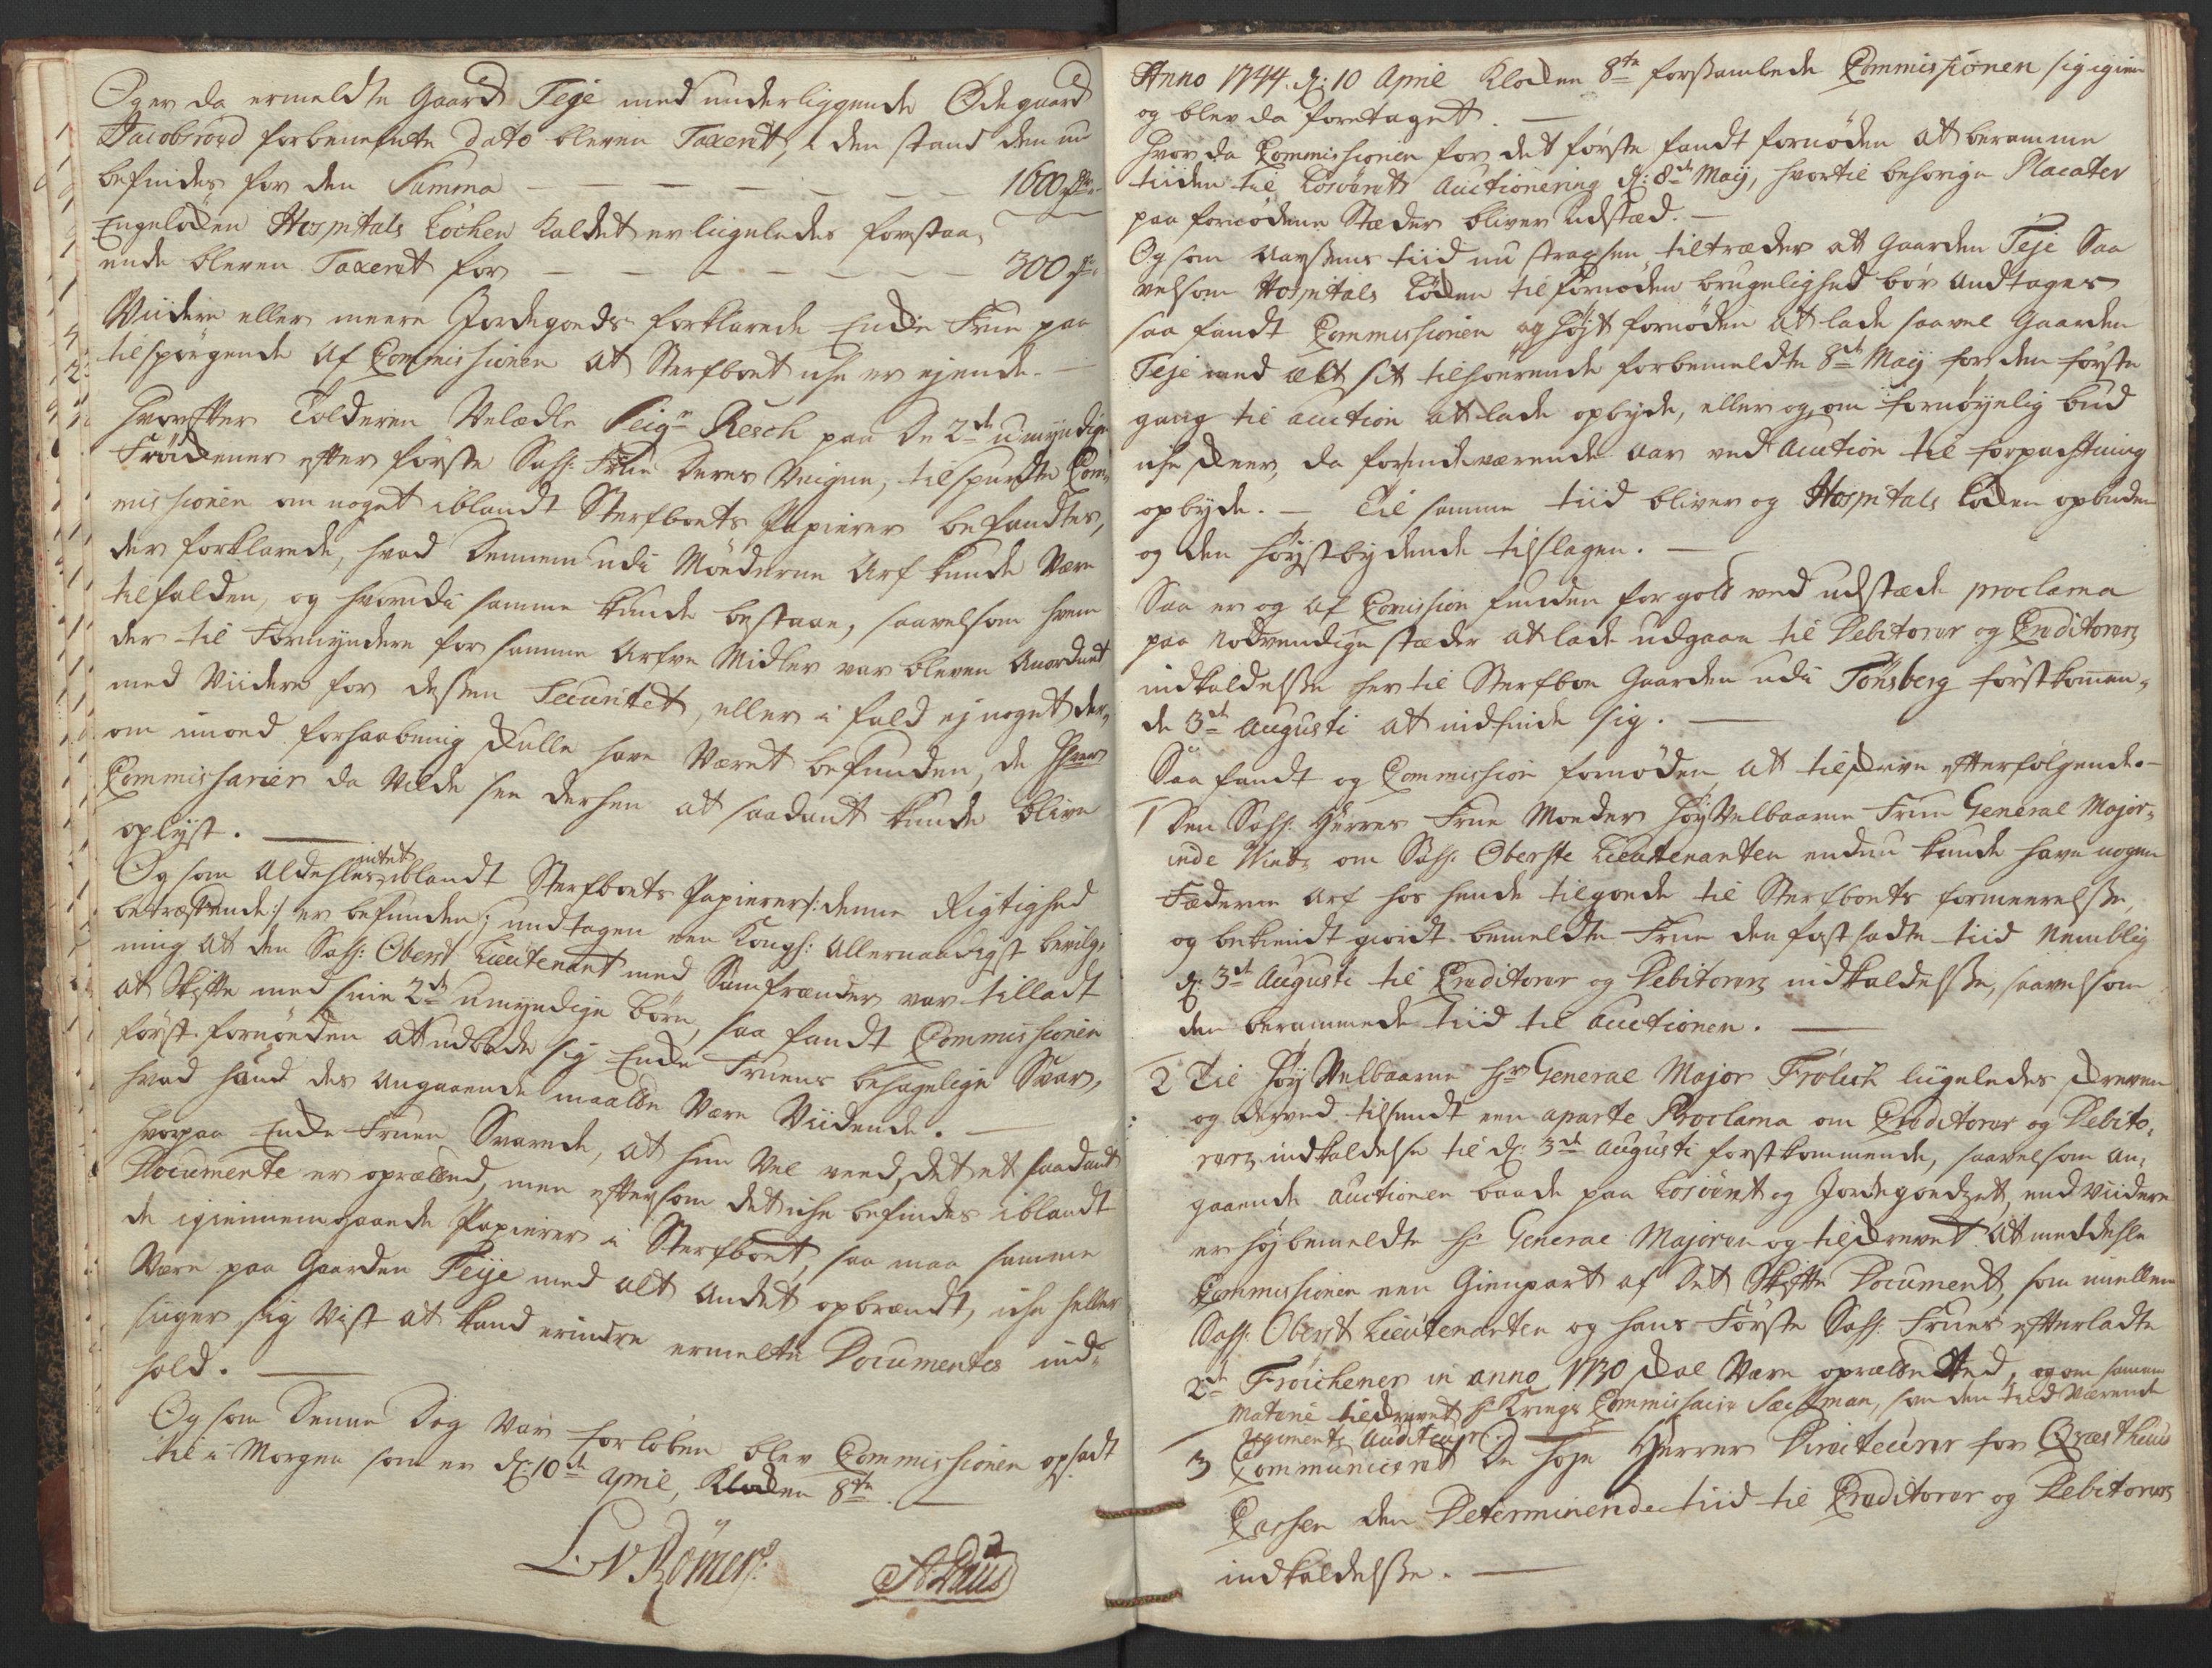 Og er da ermeldte Gaard Teje med underliggende Ødegaard
Jacobsrød forbenefnte dato bleven Taxerit, i den stand den nu
befindes for den Summa — — — — — — — 1600 rdr
Engeløkken Hospitals Løchen kaldet er ligeledes forstaa-
ende bleven Taxerit for — — — — — — — 300 rdr
Widere eller meere Jordegods forklarede Encke Frue paa
tilspørgende af Commissionen at Sterfboet icke er ejende. —
Hvorefter Tolderen Velædle Seigr Resch paa de 2de umyndige
Frøickener efter første Sahl: Frue deres Veigne, tilspurte Com-
missionen om noget iblandt Sterfboets Papierer befandtes,
der forklarede, hvad dennem udi Møderne Arf kunde være
tilfalden, og hvorudi samme kunde bestaae, saavelsom hvem
der til Formyndere for samme Arfve Midler var bleven Anordnet
med Viidere for dessen Securitet, eller i fald ej noget der-
om imod forhaabning skulle have Været befunden, de Hrer
Commissarier da Vilde see derhen at saadant kunde blive
oplyst. —
Og som aldehles intet iblandt Sterfboets Papierer /: denne Rigtighed
betræffende :/ er befunden; undtagen een Kongl: Allernaadigst bevilg-
ning at den Sahl: Oberst Lieutenant med Samfrænder var tilladt
at Skifte med sine 2de umyndige Børn, saa fandt Commissionen
først fornøden at udbede sig Encke Fruens behagelige Svar,
hvad hund des angaaende maatte være Viidende. —
Hvorpaa Encke Fruen Svarede, at hun vel veed, det et saadant
Documente er oprættend, men eftersom det icke befindes iblandt
de igiennemgaaede Papierer i Sterfboet, saa maa samme
Være paa Gaarden Teije med alt andet opbrændt, icke heller
siiger sig Vist at kand erindre ermelte Documentes ind-
hold. —
Og som denne Dag var forløben blev Commissionen opsadt
til i Morgen som er d: 10de April, Klocken 8te. —
L v Römer
A Paus
Anno 1744. d: 10 April Klocken 8te forsamlede Commissionen sig igien
og blev da foretaget. —
Hvor da Commissionen for det første fandt fornøden at beramme
tiiden til Løsørets Auctionering d: 8de Maij, hvortil behørige Placater
paa fornødene Stæder bliver udstæd. —
Og som Aarsens tiid nu strapsen tiltræder at Gaarden Teje Saa
velsom Hospitals Løcken til fornøden brugelighed bør andtages
saa fandt Commissionen og Høyst fornøden at lade saavel Gaarden
Teje med alt sit tilhørende forbemeldte 8de Maij for den første
gang til auction at lade opbyde, eller og om fornøyelig bud
icke skeer, da for inde værende Aar ved Auction til forpachtning
opbyde. — Til samme tiid bliver og Hospitals Løcken opbuden
og den høystbydende tilslagen. —
Saa er og af Comission funden for godt ved udstæde proclama
paa Nødvendige stæder at lade udgaae til Debitorer og Creditorers
indkaldelsse her til Sterfboe Gaarden udi Tønsberg førstkommen-
de 3de Augusti at indfinde sig. —
Saa fandt og Commission fornøden at tilskrive efterfølgende. —
1 Den Sahl: Herres Frue Moeder HøyVelbaarne Frue General Major-
inde om Sahl: Oberste Lieutenanten endnu kunde have nogen
Fæderne Arf hos hende tilgoede til Sterfboets formeerelsse,
og bekiendt giordt bemeldte Frue den fastsadte tiid Nemblig
d: 3de Augusti til Creditorer og Debitorers indkaldelsse, saavelsom
den berammede tiid til Auctionen. —
2 Til Høy Velbaarne Hr General Major Frølich ligeledes skreven
og derved tilsendt een aparte Proclama om Creditorer og Debito-
rers indkaldelse til d: 3de Augusti førstkommende, saavelsom an-
gaaende auctionen baade paa Løsøret og Jordegodzet, end Viidere
er høybemeldte Hr General Majoren og tilskrevet at meddehle
Commissionen een Gienpart af det Skifte Document, som imellem
Sahl: Oberst Lieutenanten og hans Første Sahl: Frues efterladte
2de Frøichener in anno 1730 skal Være oprættet, og om samme
Materie tilskrevet Hr Krigs Commissair Seckman, som den tiid værende
Regiments Auditeur. —
3 Communicerit de høje Herrer Directeurer for Qvæsthuus
Cassen den Determinerede tiid til Creditorer og Debitorers
indkaldelsse. —